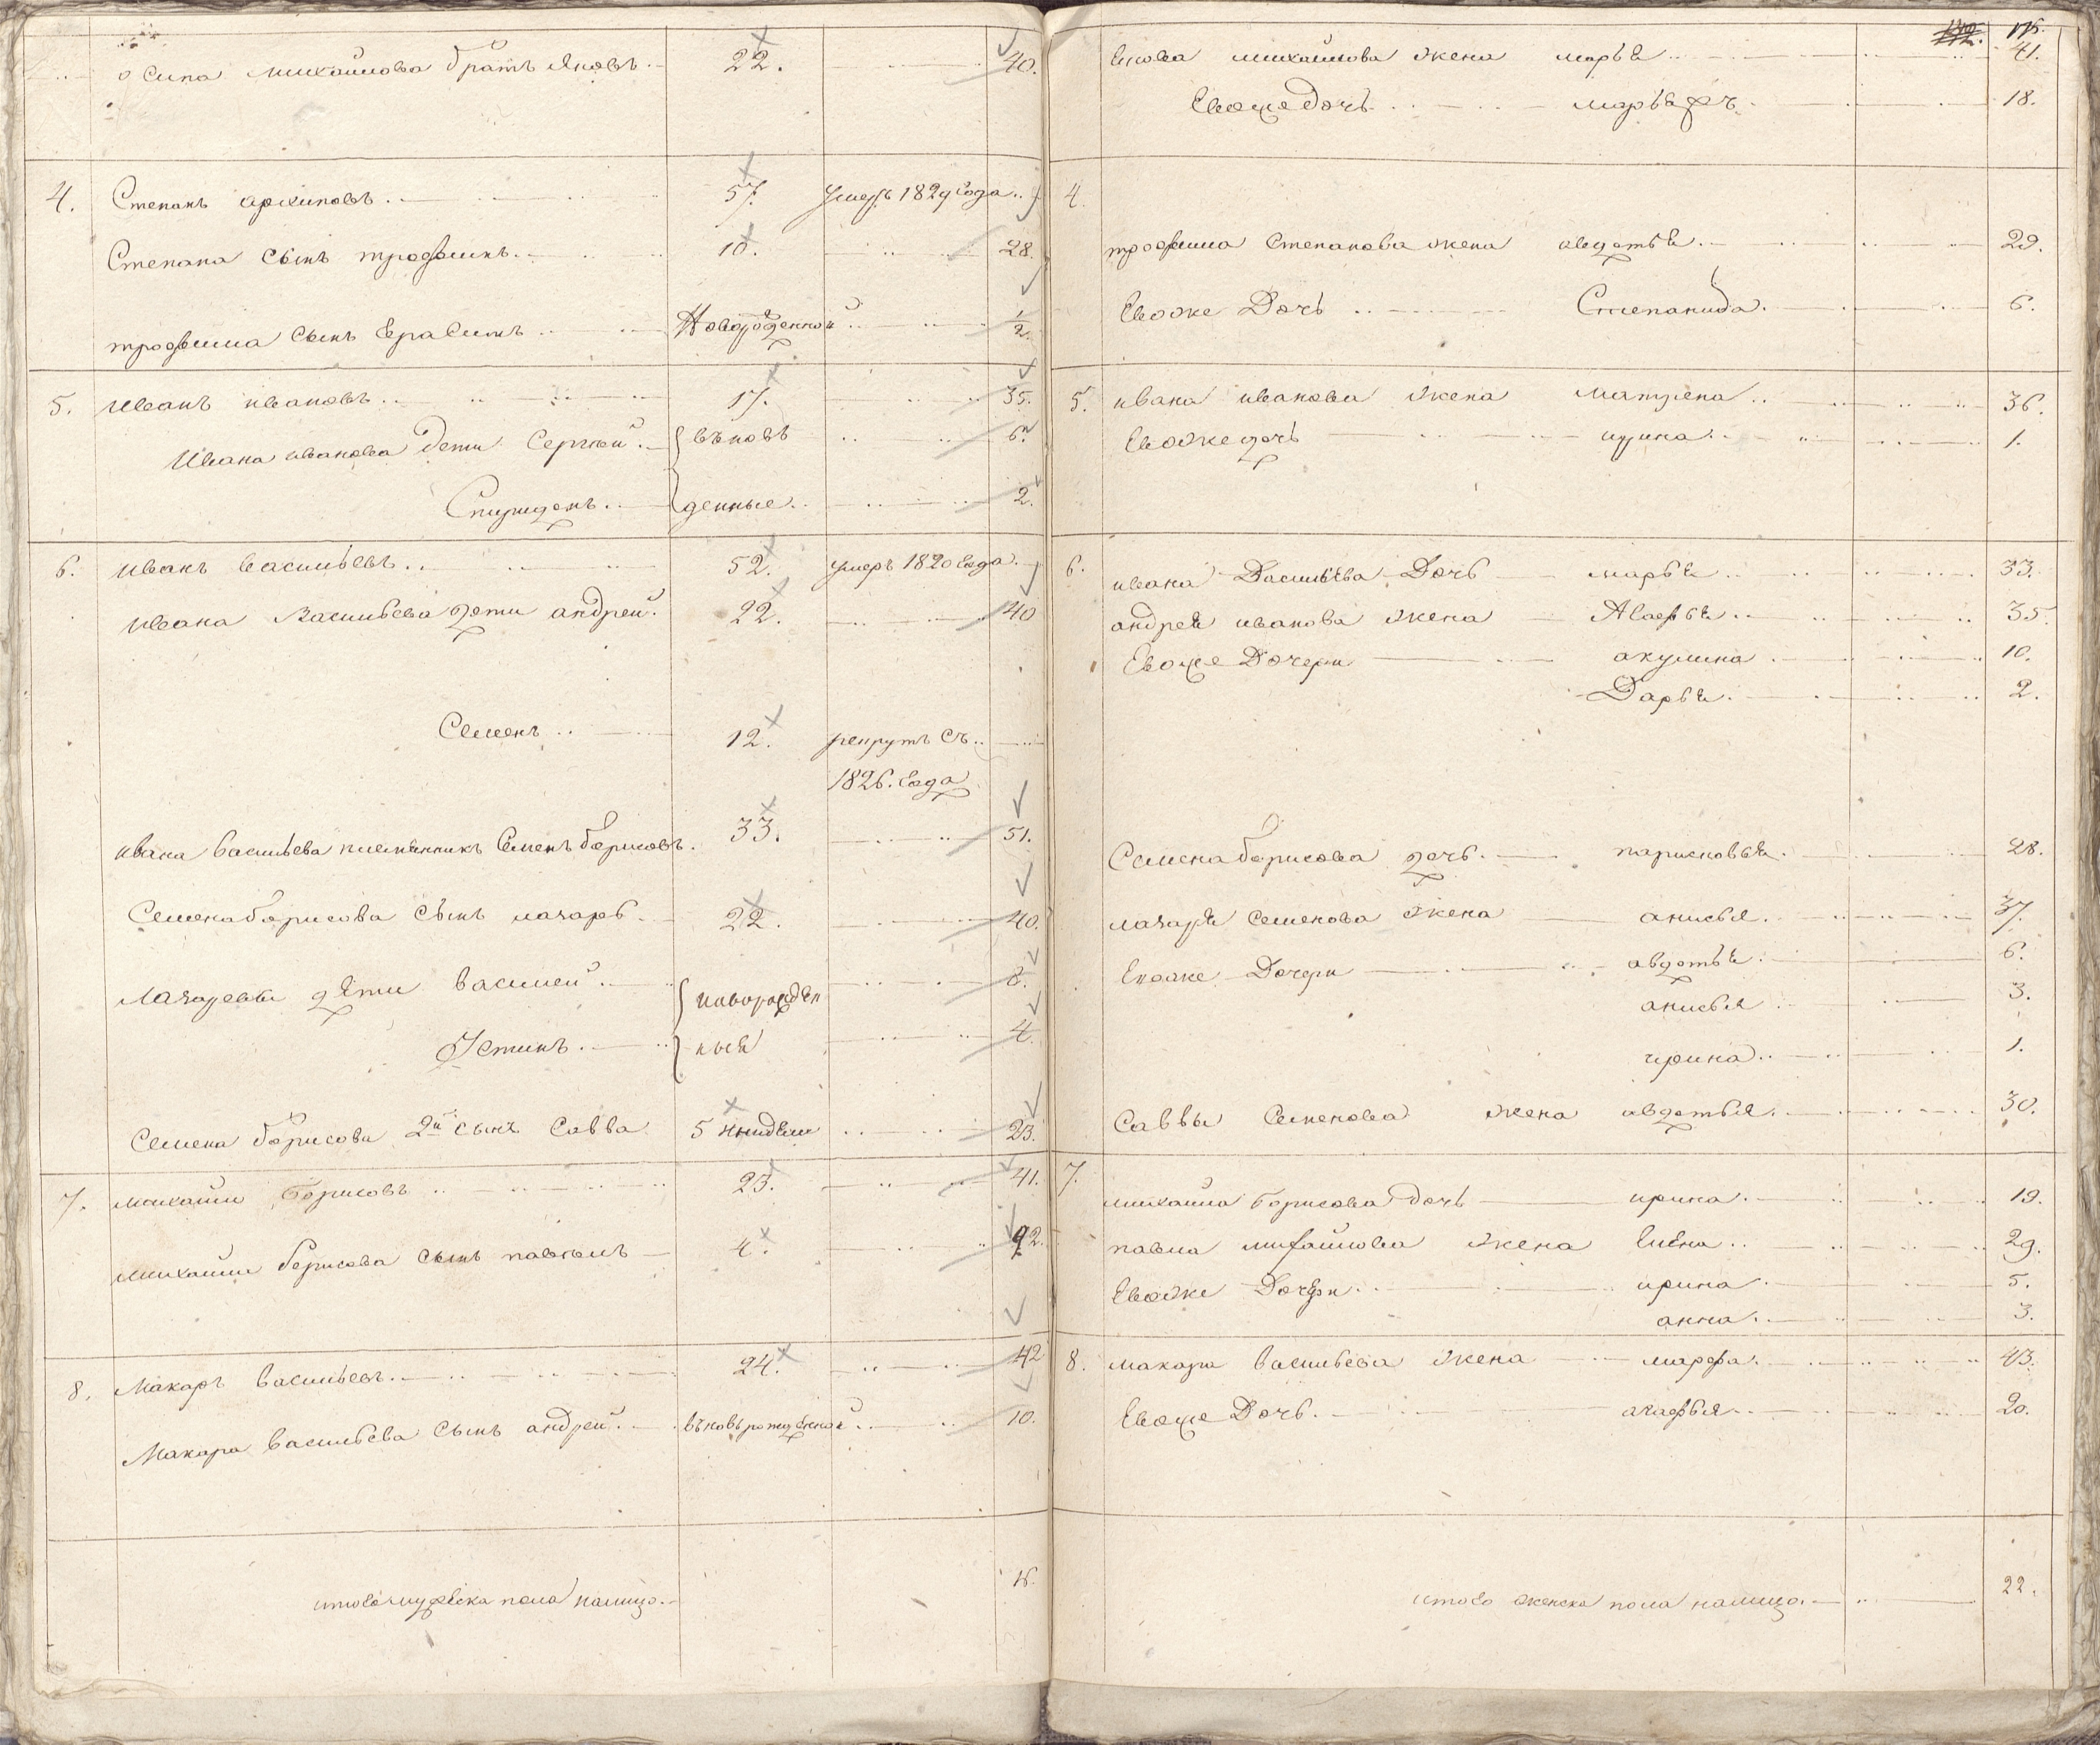 осипа михайлова братъ яковъ 22. 40.
4. Степанъ архиповъ 57. умеръ 1829 года
Степана сынъ трофимъ 10. 28.
трофима сынъ Ерасимъ Новорожденной 1/2
5. иванъ ивановъ 17. 35.
ивана иванова дети Сергѣй вѣновь 6
Спиридонъ денные 2.
6. иванъ васильевъ 52. умеръ 1820 года
ивана васильева дети андрей 22. 40
Семенъ 12. рекрутъ съ
1826. года
ивана васильева племянникъ Семенъ борисовъ. 33. 51.
Семена борисова сынъ лазарь 22. 40.
Лазаревы дѣти василей новорожден 8.
Устинъ ныя 4
Семена борисова 2й сынъ Савва 5 недели 23.
7. михайла борисовъ 23. 41.
михайлы борисова сынъ павелъ 4. 22.
8. Макаръ васильевъ 24. 42
Макара васильева сынъ андрей вновьрожденной 10.
итого мужеска пола налицо 16.
175.
якова михайлова жена марья 41.
Евоже дочь марья 18.
4.
трофима Степанова жена авдотья 29.
Евоже Дочь Степанида 6.
5. ивана иванова жена матрена 36.
Евоже дочь ирина 1.
6. ивана Васильева Дочь марья 33.
андрея иванова жена Агафья 35.
Евоже Дочери акулина 10.
Дарья 2.
Семена борисова дочь парасковья 28.
лазаря семенова жена анисья 37.
Евоже Дочери авдотья 6.
анисья 3.
ирина 1.
Саввы Семенова жена авдотья 30.
7. михайла борисова дочь ирина 19.
павла михайлова жена Елена 29.
Евоже Дочери ирина 5.
анна 3.
8. макара васильева жена марфа 43.
Евоже Дочь агафья 20.
итого женска пола налицо 22.